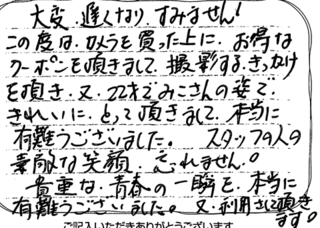 大変、遅くなり、すみません!
この度は、カメラを買った上に、お得な
クーポンを頂きまして、撮影するきっかけ
を頂き、又、22才でみこさんの姿で、
きれいに、とって頂きまして、本当に
有難うございました。 スタッフの人の
素敵な笑顔、忘れません。
貴重な、青春の一瞬を、本当に
有難うございました。又、利用させて頂き
ます。
ご記入いただきありがとうございます